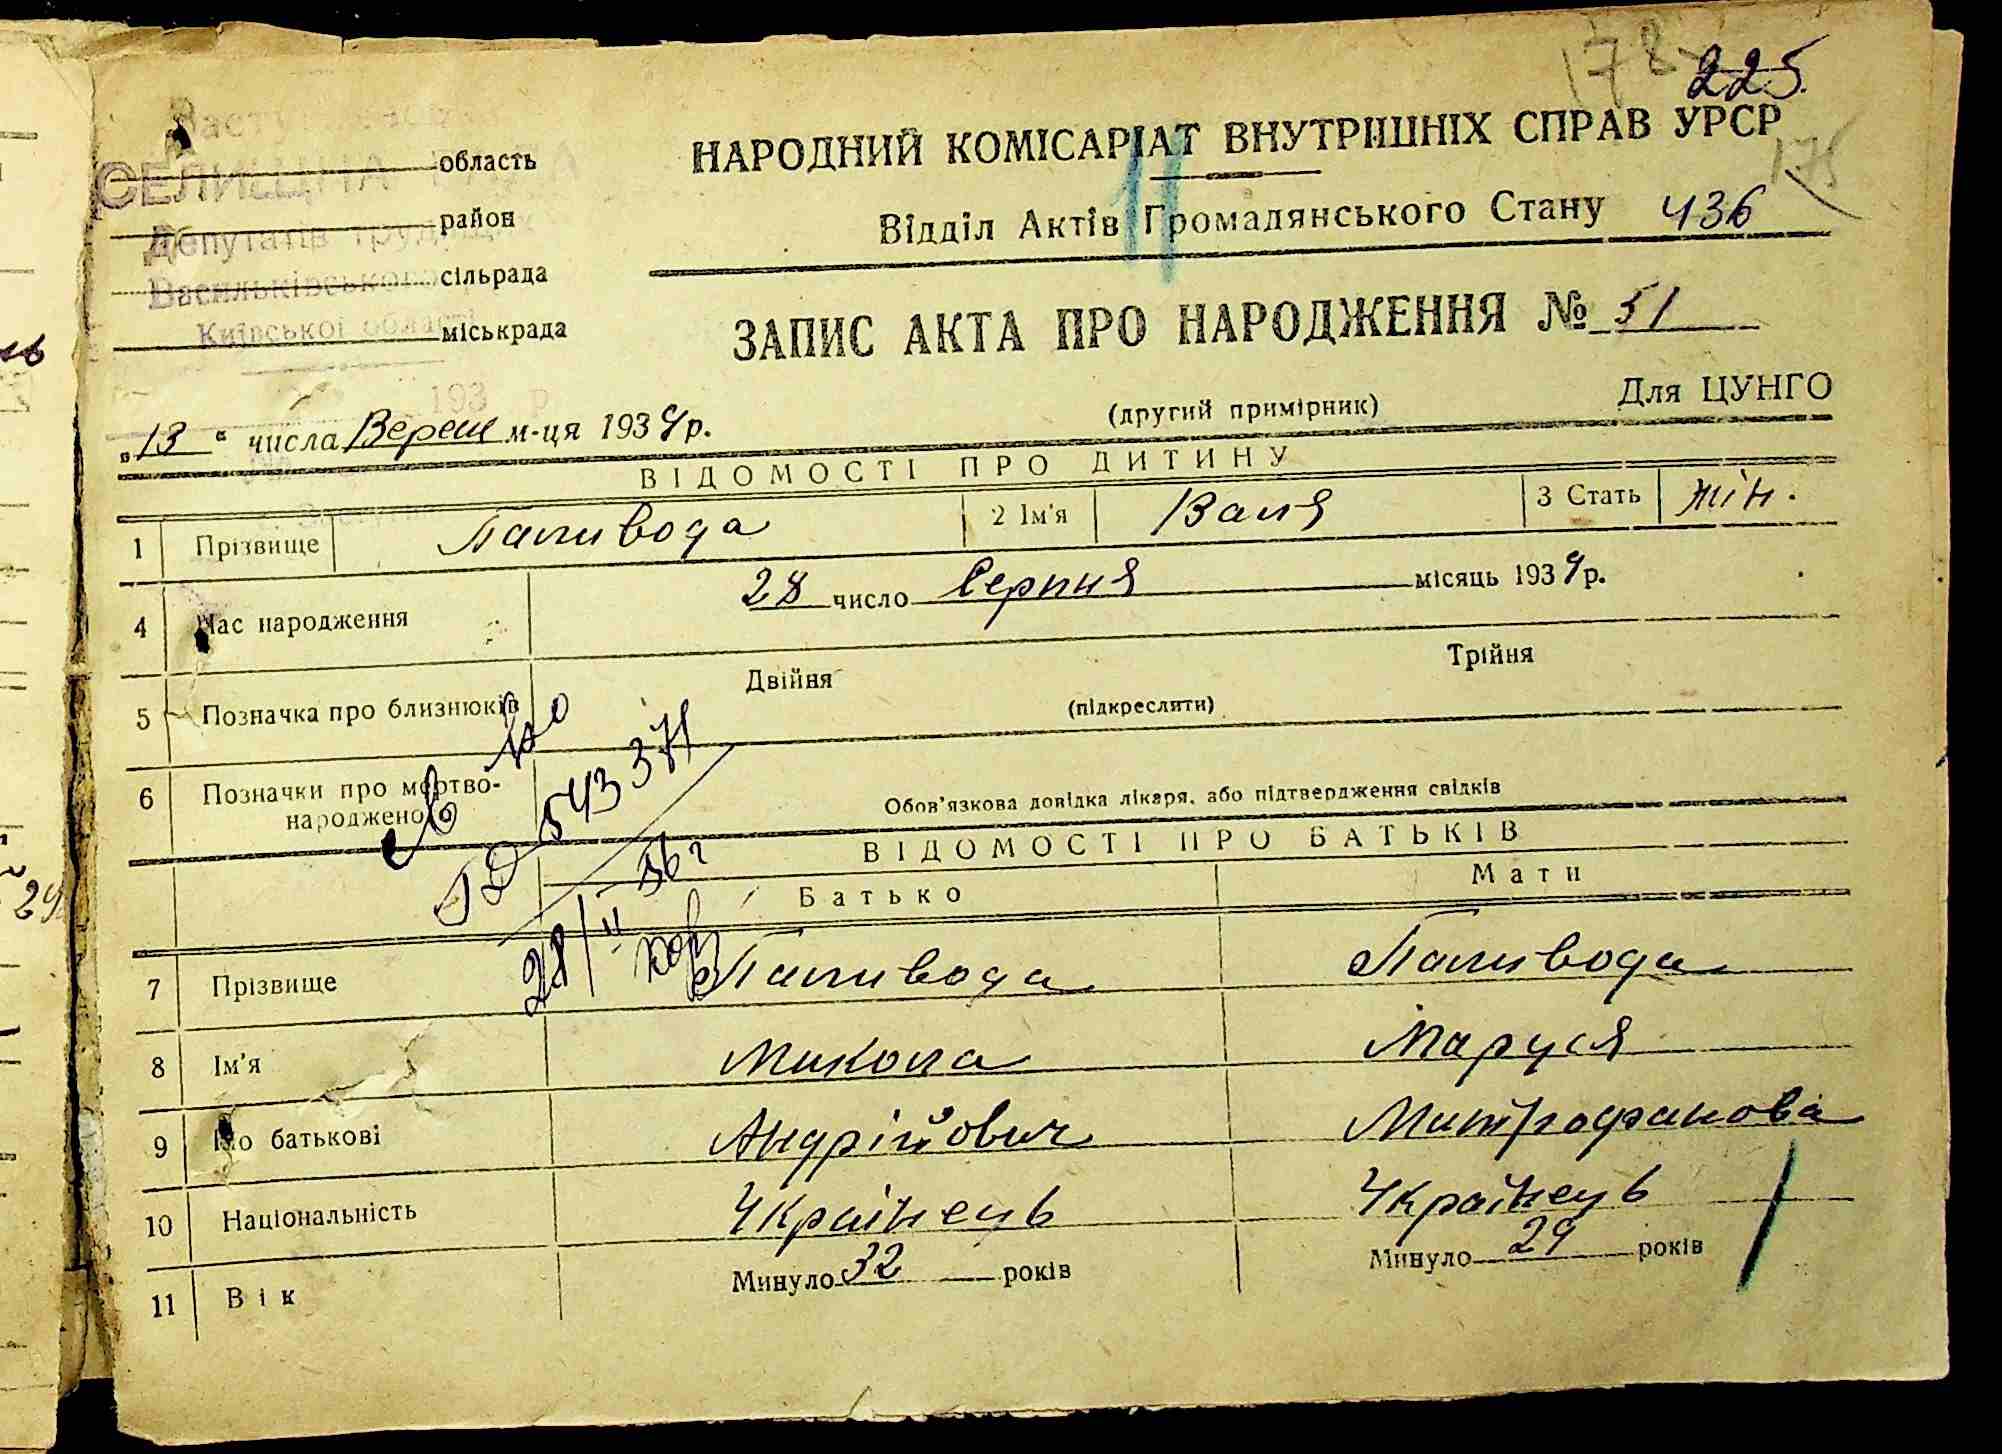 178
225.
175
СЕЛИЩНА РАДА
Депутатів трудящих
Васильківського
Київської області
193 р
область
район
сільрада
міськрада
НАРОДНИЙ КОМІСАРІАТ ВНУТРІШНІХ СПРАВ УРСР
11
Відділ Актів Громадянського Стану 436
ЗАПИС АКТА ПРО НАРОДЖЕННЯ № 51
(другий примірник)
Для ЦУНГО
„13“ числа Вереш м-ця 1939р.
ВІДОМОСТІ ПРО ДИТИНУ
1 Прізвище Паливода 2 Ім'я Валя 3 Стать жін.
4 Час народження 28 число Серпня місяць 1939р.
5 Позначка про близнюків Двійня (підкреслити) Трійня
6 Позначки про мертво-
народженого Обов'язкова довідка лікаря, або підтвердження свідків
543371
28/II-56г
ВІДОМОСТІ ПРО БАТЬКІВ
Батько Мати
7 Прізвище Паливода Паливода
8 Ім'я Микола Маруся
9 По батькові Андрійович Митрофанова
10 Національність Українець Українець
11 Вік Минуло 32 років Минуло 29 років